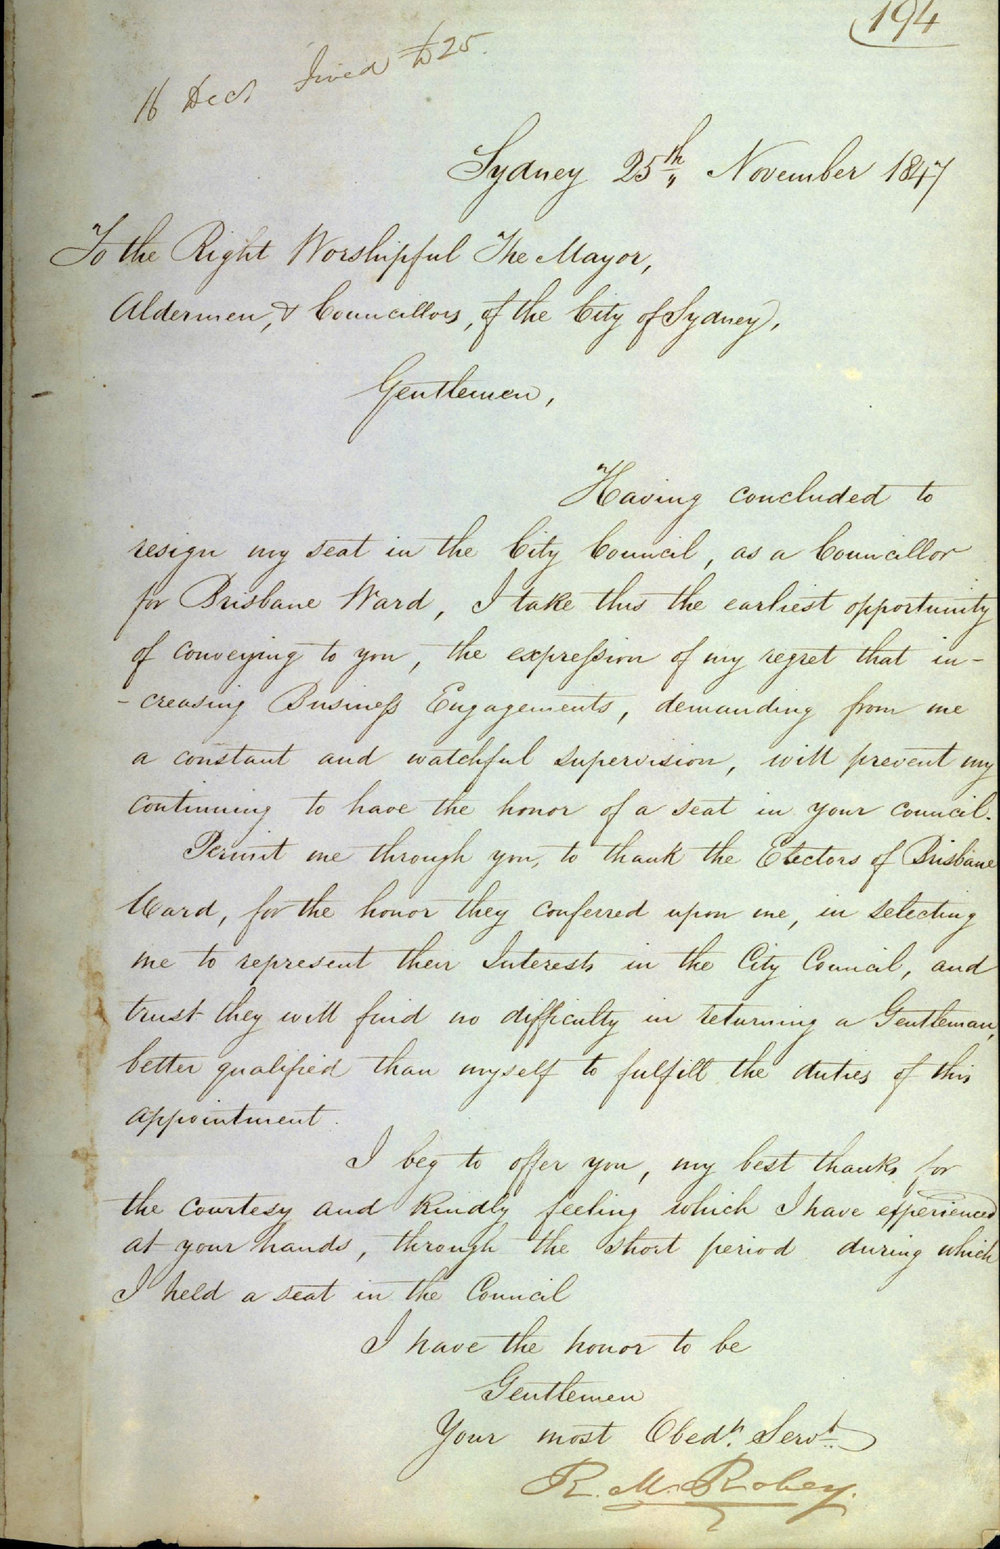 194
16 Decr fined £25.
Sydney 25th November 1847
To the Right Worshipful The Mayor,
Aldermen, & Councillors, of the City of Sydney,
Gentlemen,
Having concluded to
resign my seat in the City Council, as a Councillor
for Brisbane Ward, I take this the earliest opportunity
of conveying to you, the expression of my regret that in-
-creasing Business Engagements, demanding from me
a constant and watchful supervision, will prevent my
continuing to have the honor of a seat in your council.
Permit me through you, to thank the Electors of Brisbane
Ward, for the honor they conferred upon me, in selecting
me to represent their Interests in the City Council, and
trust they will find no difficulty in returning a Gentleman,
better qualified than myself to fulfill the duties of this
appointment.
I beg to offer you, my best thanks for
the courtesy and kindly feeling which I have experienced
at your hands, through the short period during which
I held a seat in the Council
I have the honor to be
Gentlemen
Your most Obedt. Servt.
R. M. Robey.